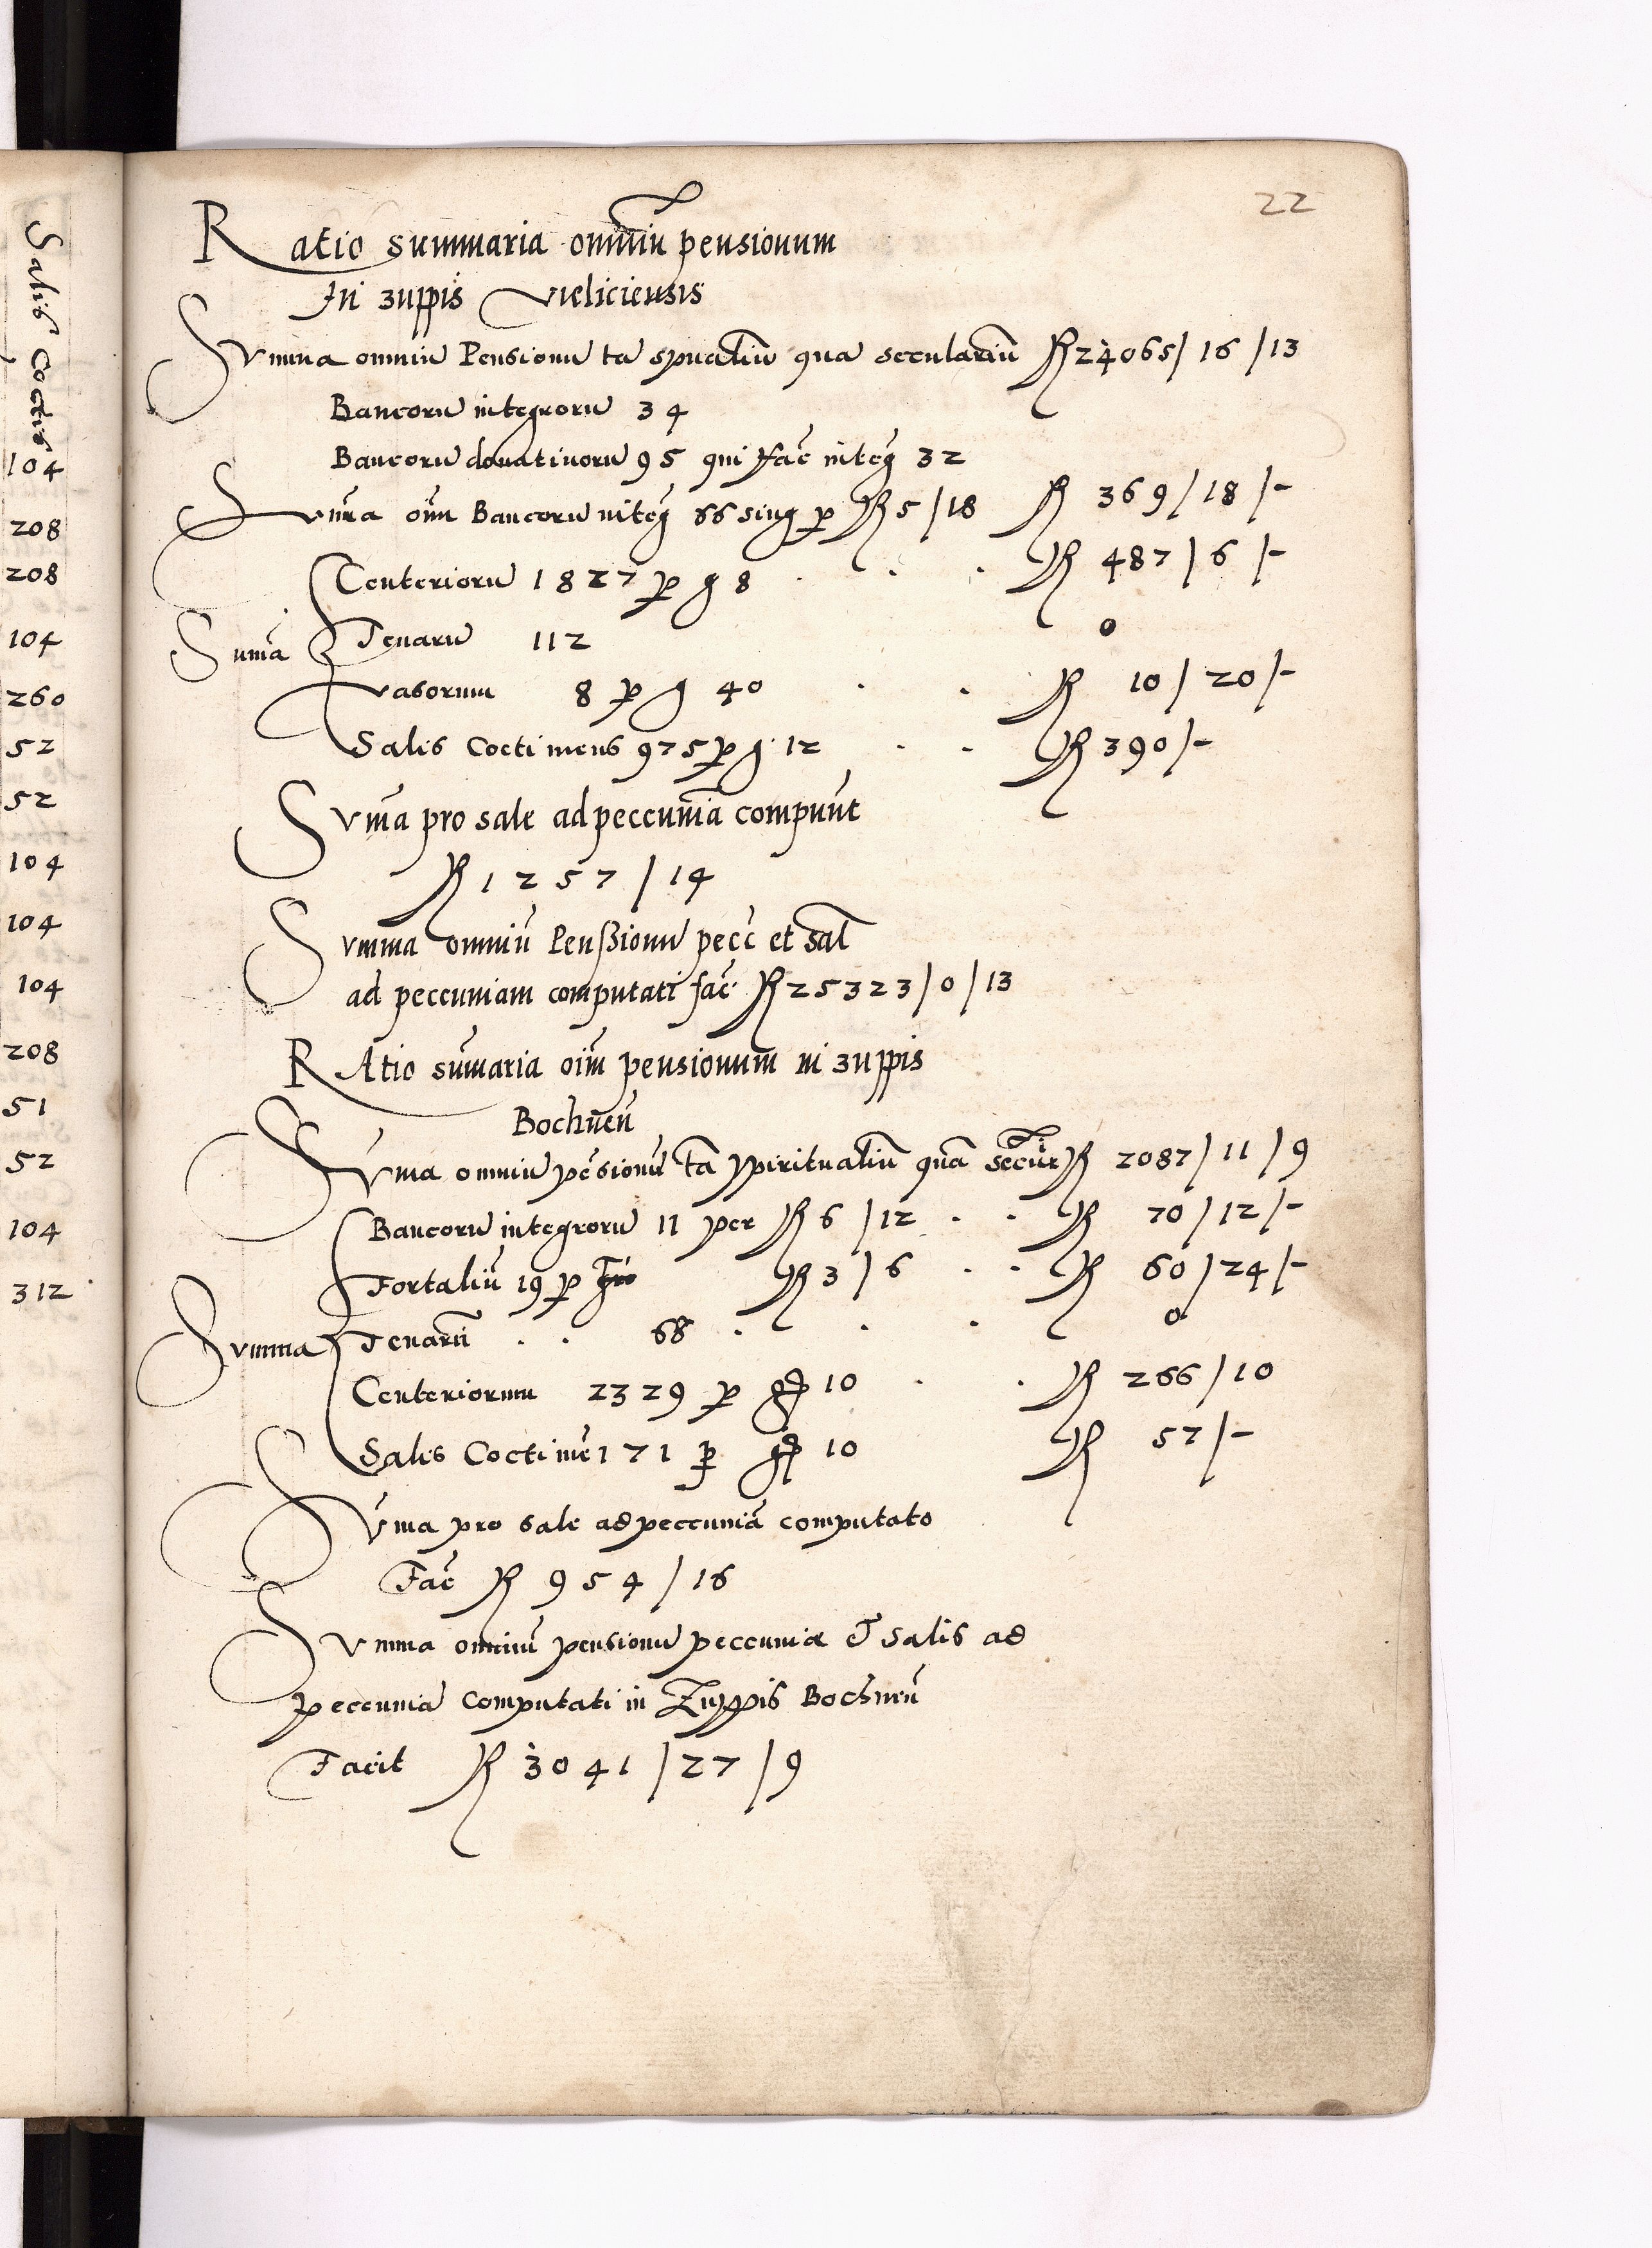 Salis Coctis
104
208
208
104
260
52
52
104
104
104
208
51
52
104
312
22
Ratio summaria omniū pensionum
In zuppis vieliciensis
Summa omniū Pensionū tā spualiū quā secularium R 24065/16/13
Bancorū integrorū 34
Bancorū donativorū 95 qui fac̄ integ 32
Sum̄a oīm Bancorū integ 66 sing p R 5/18 R 369/18/-
Centeriorū 1827 p g 8 . . . R 487/6/-
Sum̄a Tenarū 112 0
vasorum 8 p g 40 . . R 10/20/-
Salis Cocti mens 975 p g 12 . . R 390/-
Sum̄a pro sale ad peccuniā compunt
R 1257/14
Summa omniū Penßionū pecc̄ et sal
ad peccuniam computati fac̄ R 25323/0/13
RAtio sum̄aria oīm pensionum in zuppis
Bochnen̄
Sum̄a omniū pēsionū tā spiritualiū quā secur R 2087/11/9
Bancorū integrorū 11 per R 6/12 . . R 70/12/-
Fortaliū 19 p R 3/6 . . R 60/24/-
Summa Tenarū . . 68 . . . 0
Centeriorum 2329 p gr 10 . . R 266/10
Salis Cocti mē 171 p gr 10 R 57/-
Sum̄a pro sale ad peccuniā computato
Fac̄ R 954/16
Summa omniū pensionū peccuniæ et salis ad
peccuniā computati in Zuppis Bochnen̄
Facit R 3041/27/9